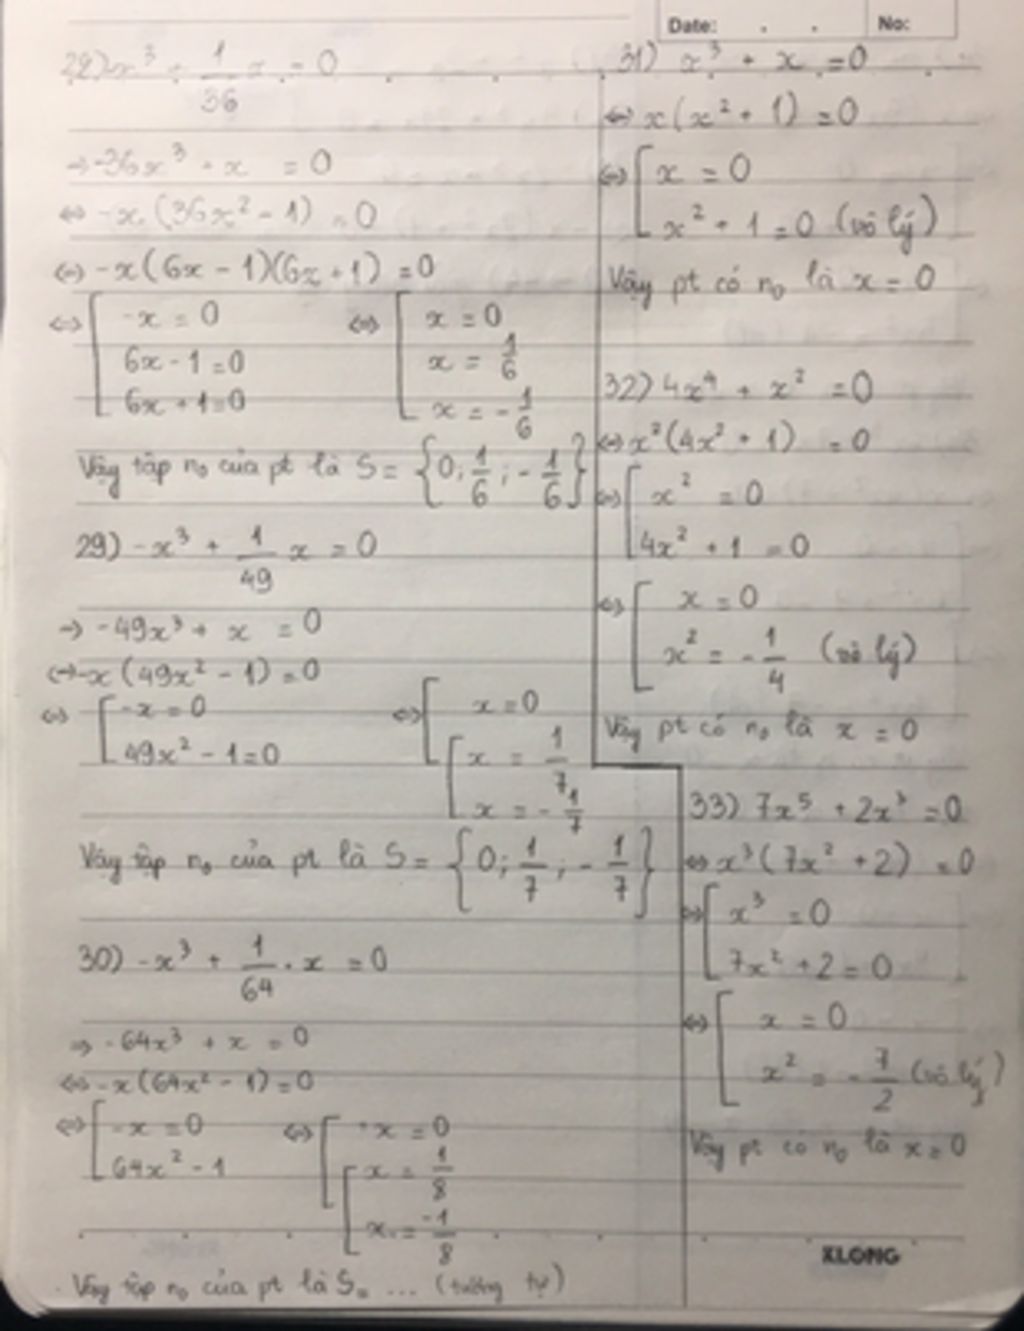 Date: . . No:
28) -x³ + 1/36 x = 0
→ -36x³ + x = 0
⇔ -x. (36x² - 1) = 0
⇔ -x(6x - 1)(6x + 1) = 0
⇔ [ -x = 0 ⇔ [ x = 0
6x - 1 = 0 x = 1/6
6x + 1 = 0 x = -1/6
Vậy tập n₀ của pt là S = {0; 1/6; -1/6}
29) -x³ + 1/49 x = 0
→ -49x³ + x = 0
⇔ -x(49x² - 1) = 0
⇔ [ -x = 0 ⇔ [ x = 0
49x² - 1 = 0 [ x = 1/7
x = -1/7
Vậy tập n₀ của pt là S = {0; 1/7; -1/7}
30) -x³ + 1/64 . x = 0
⇒ -64x³ + x = 0
⇔ -x(64x² - 1) = 0
⇔ [ -x = 0 ⇔ [ x = 0
64x² - 1 [ x = 1/8
x = -1/8
Vậy tập n₀ của pt là S = ... (tương tự)
31) x³ + x = 0
⇔ x(x² + 1) = 0
⇔ [ x = 0
x² + 1 = 0 (vô lý)
Vậy pt có n₀ là x = 0
32) 4x⁴ + x² = 0
⇔ x²(4x² + 1) = 0
⇔ [ x² = 0
4x² + 1 = 0
⇔ [ x = 0
x² = -1/4 (vô lý)
Vậy pt có n₀ là x = 0
33) 7x⁵ + 2x³ = 0
⇔ x³(7x² + 2) = 0
⇔ [ x³ = 0
7x² + 2 = 0
⇔ [ x = 0
x² = -7/2 (vô lý)
Vậy pt có n₀ là x = 0
KLONG